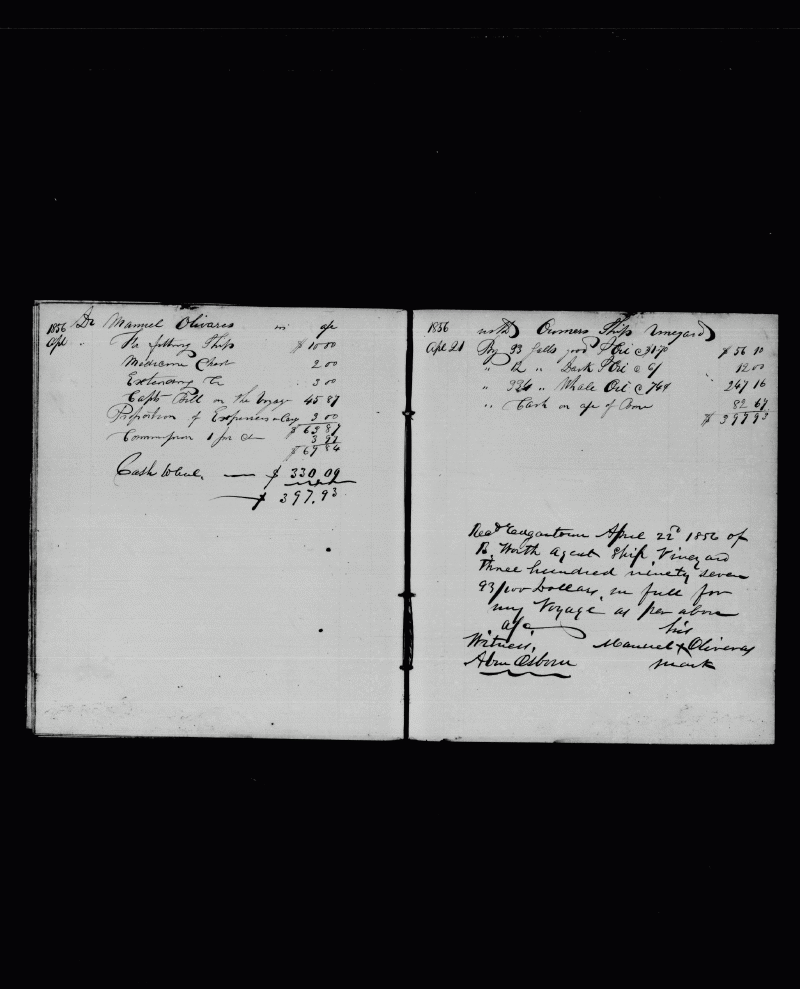 1856 Dr Manuel Olivares in a/c
Apl " For fitting Ship $ 10 00
Medicine Chest 2 00
Extending &c 3 00
Capts Bill on the Voyage 45 87
Proportion of Expenses on Cargo 3 00
$ 63 87
Commission 1 per Ct 3 97
$ 67 84
Cash to bal. — $ 330.09
$ 397.93
1856 with Owners Ship Vineyard
Apl 21 By 93 Galls good S Oil $ 56 10
" 12 " Dark S Oil 12 00
" 334 " Whale Oil @ 74¢ 247 16
" Cash on a/c of Bone 82 67
$ 397 93
Recd Edgartown April 22d 1856 of
B. Worth Agent Ship Vineyard
Three hundred ninety seven
93/100 Dollars, in full for
my Voyage as per above
a/c his
Witness, Manuel X Oliveras
Abm Osborn mark